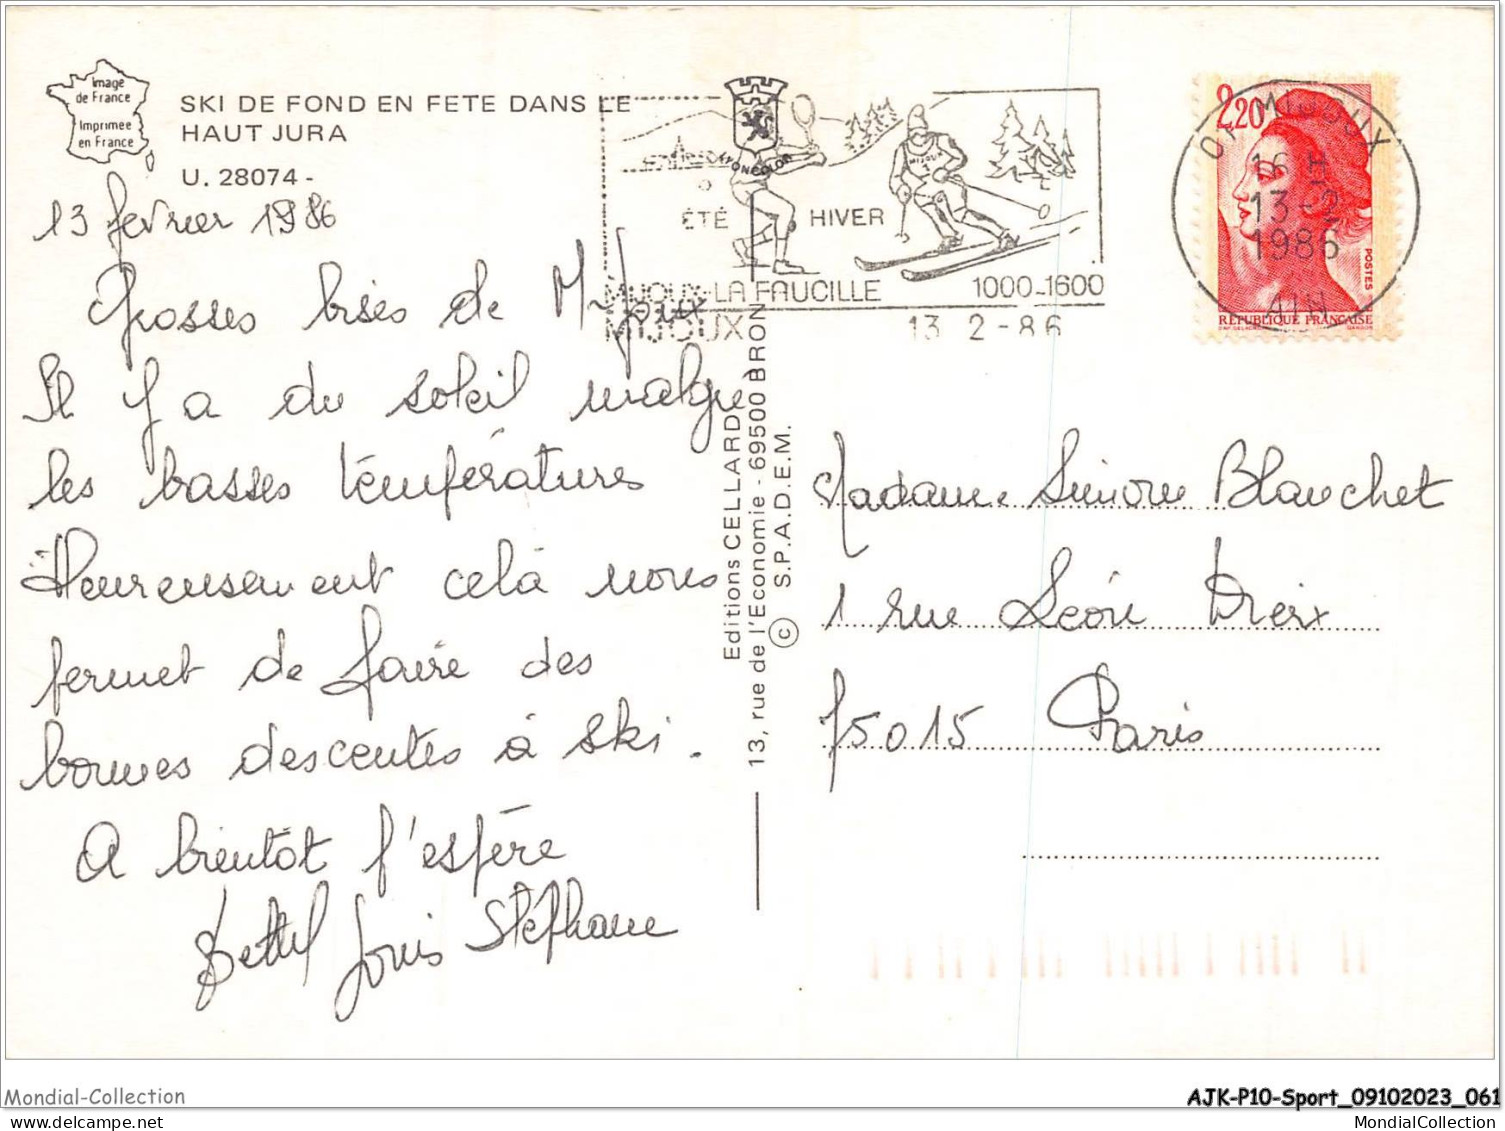 Image
de France
Imprimée
en France
SKI DE FOND EN FETE DANS LE
HAUT JURA
U. 28074 -
13 fevrier 1986
Grosses bises de Mijoux
Il y a du soleil malgré
les basses températures
Heureusement celà nous
permet de faire des
bonnes descentes à ski.
A bientôt j'espère
Louis Stéphane
Editions CELLARD
13, rue de l'Economie - 69500 BRON
© S.P.A.D.E.M.
COMBICOLOR
MIJOUX
ÉTÉ
HIVER
MIJOUX-LA FAUCILLE 1000-1600
MIJOUX 13 2-86
2,20
POSTES
RÉPUBLIQUE FRANÇAISE
01 MIJOUX
16 H
13-2
1986
AIN
Madame Simone Blanchet
1 rue Léon
75015 Paris
Mondial-Collection
AJK-P10-Sport_09102023_061
MondialCollection